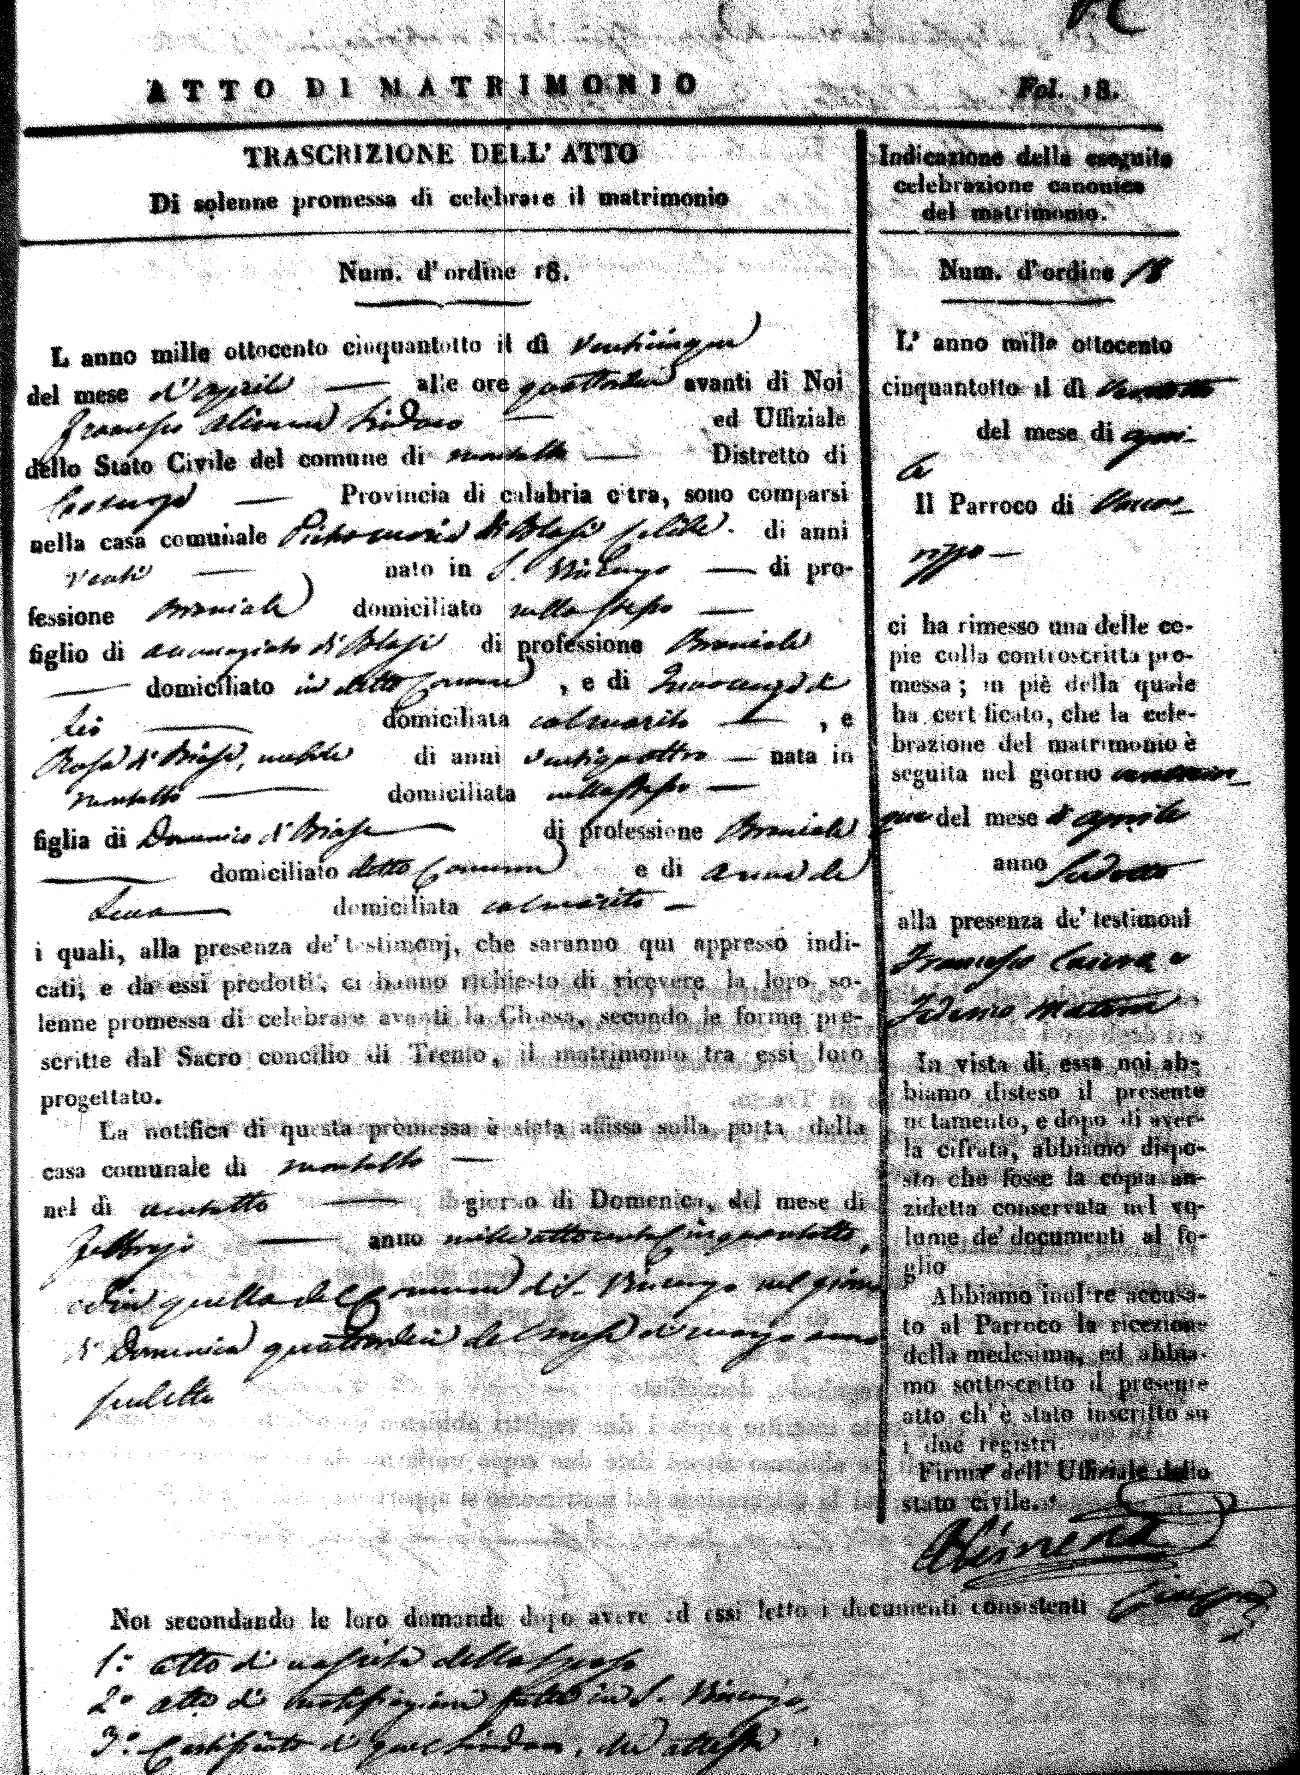 ATTO DI MATRIMONIO
Fol. 18.
TRASCRIZIONE DELL' ATTO
Di solenne promessa di celebrare il matrimonio
Num. d' ordine 18.
L anno mille ottocento cinquantotto il dì venticinque
del mese d'aprile alle ore quattordici avanti di Noi
Francesco Alimena Sindaco ed Uffiziale
dello Stato Civile del comune di Montalto Distretto di
Cosenza Provincia di calabria citra, sono comparsi
nella casa comunale di Blasi celibe di anni
venti nato in S. Vincenzo di pro-
fessione Bracciale domiciliato nello stesso
figlio di Annunziato di Blasi di professione Bracciale
domiciliato in detto Comune, e di
domiciliata col marito, e
Rosa di Biase, nubile di anni ventiquattro nata in
Montalto domiciliata nello stesso
figlia di Domenico di Biase di professione Bracciale
domiciliato detto Comune e di Anna de
Luca domiciliata col marito
i quali, alla presenza de' testimonj, che saranno qui appresso indi-
cati, e da essi prodotti, ci hanno richiesto di ricevere la loro so-
lenne promessa di celebrare avanti la Chiesa, secondo le forme pre-
scritte dal Sacro concilio di Trento, il matrimonio tra essi loro
progettato.
La notifica di questa promessa è stata affissa sulla porta della
casa comunale di Montalto
nel dì ventotto giorno di Domenica, del mese di
Febbrajo anno mille ottocento Cinquantotto,
ed in quella del Comune di S. Vincenzo nel giorno
di Domenica quattordici del mese di marzo anno
sudetto
Indicazione della eseguita
celebrazione canonica
del matrimonio.
Num. d'ordine 18
L' anno mille ottocento
cinquantotto il dì ventotto
del mese di apri-
le
Il Parroco di
ci ha rimesso una delle co-
pie colla controscritta pro-
messa; in piè della quale
ha certificato, che la cele-
brazione del matrimonio è
seguita nel giorno venticin-
que del mese di aprile
anno sudetto
alla presenza de' testimoni
Francesco e
In vista di essa noi ab-
biamo disteso il presente
notamento, e dopo di aver-
la cifrata, abbiamo dispo-
sto che fosse la copia an-
zidetta conservata nel vo-
lume de' documenti al fo-
glio
Abbiamo inoltre accusa-
to al Parroco la ricezione
della medesima, ed abbia-
mo sottoscritto il presente
atto ch' è stato inscritto su
i due registri
Firma dell' Uffiziale dello
stato civile.
Alimena
Noi secondando le loro domande dopo avere ad essi letto i documenti consistenti
1.° atto di nascita dello sposo
2.° atto di notificazione fatta in S. Vincenzo,
3.° Certificato di quel Sindaco, che attesta